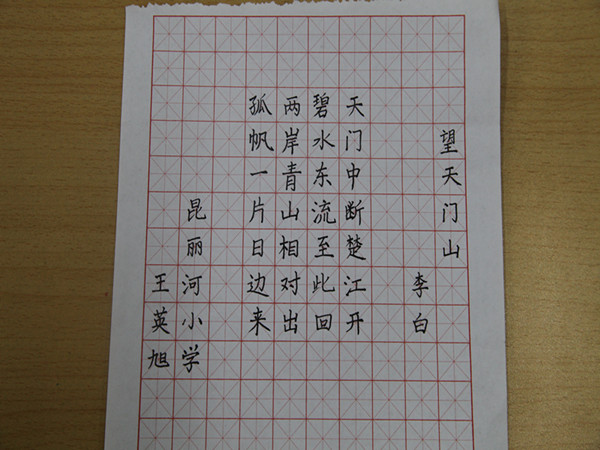 望天门山
李白
天门中断楚江开
碧水东流至此回
两岸青山相对出
孤帆一片日边来
昆丽河小学
王英旭